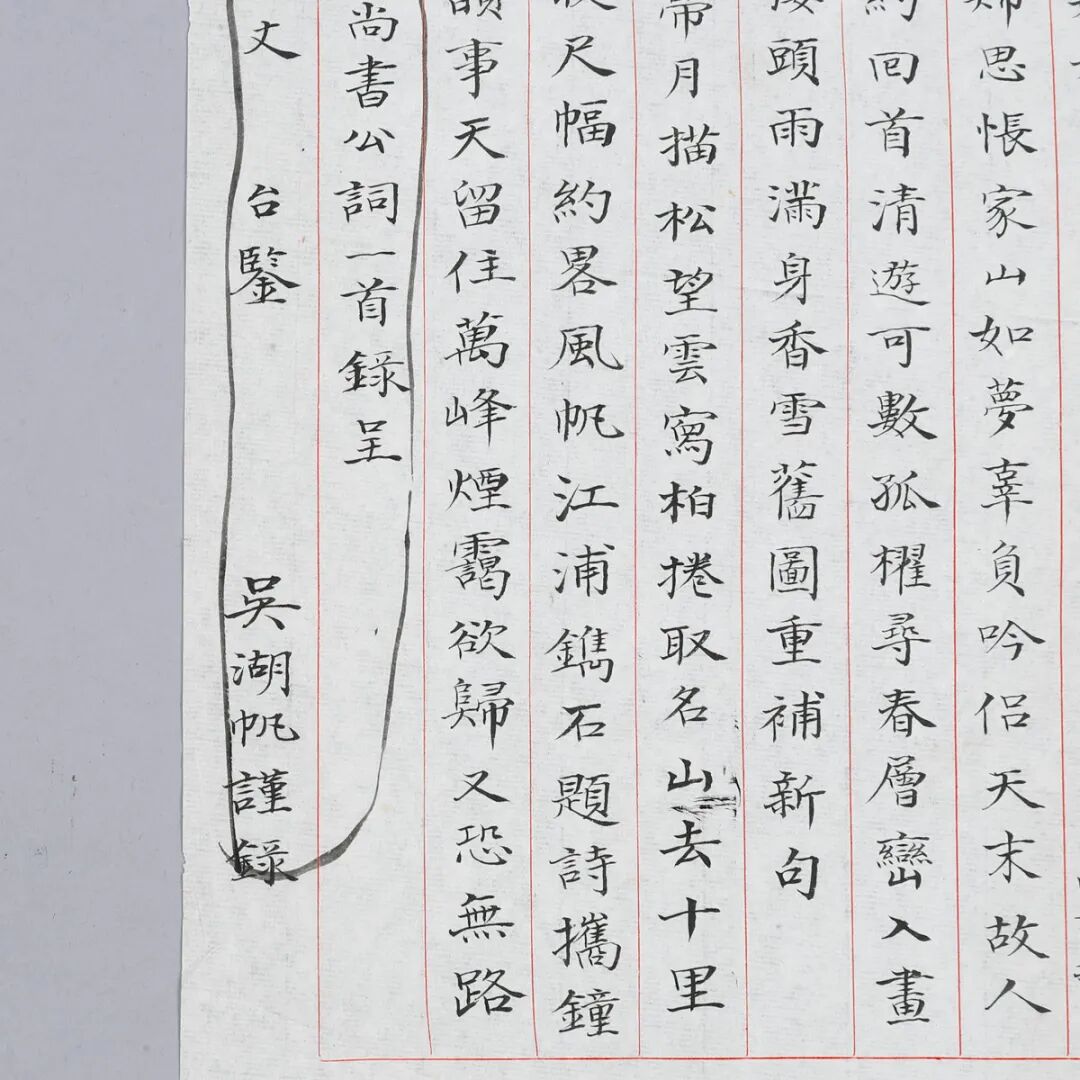 思悵家山如夢辜負吟侶天末故人
回首清遊可數孤櫂尋春層巒入畫
頭雨滿身香雪舊圖重補新句
帶月描松望雲寫柏捲取名山去十里
尺幅約畧風帆江浦鐫石題詩攜鐘
韻事天留住萬峰煙靄欲歸又恐無路
尚書公詞一首錄呈
丈 台鑒 吳湖帆謹錄